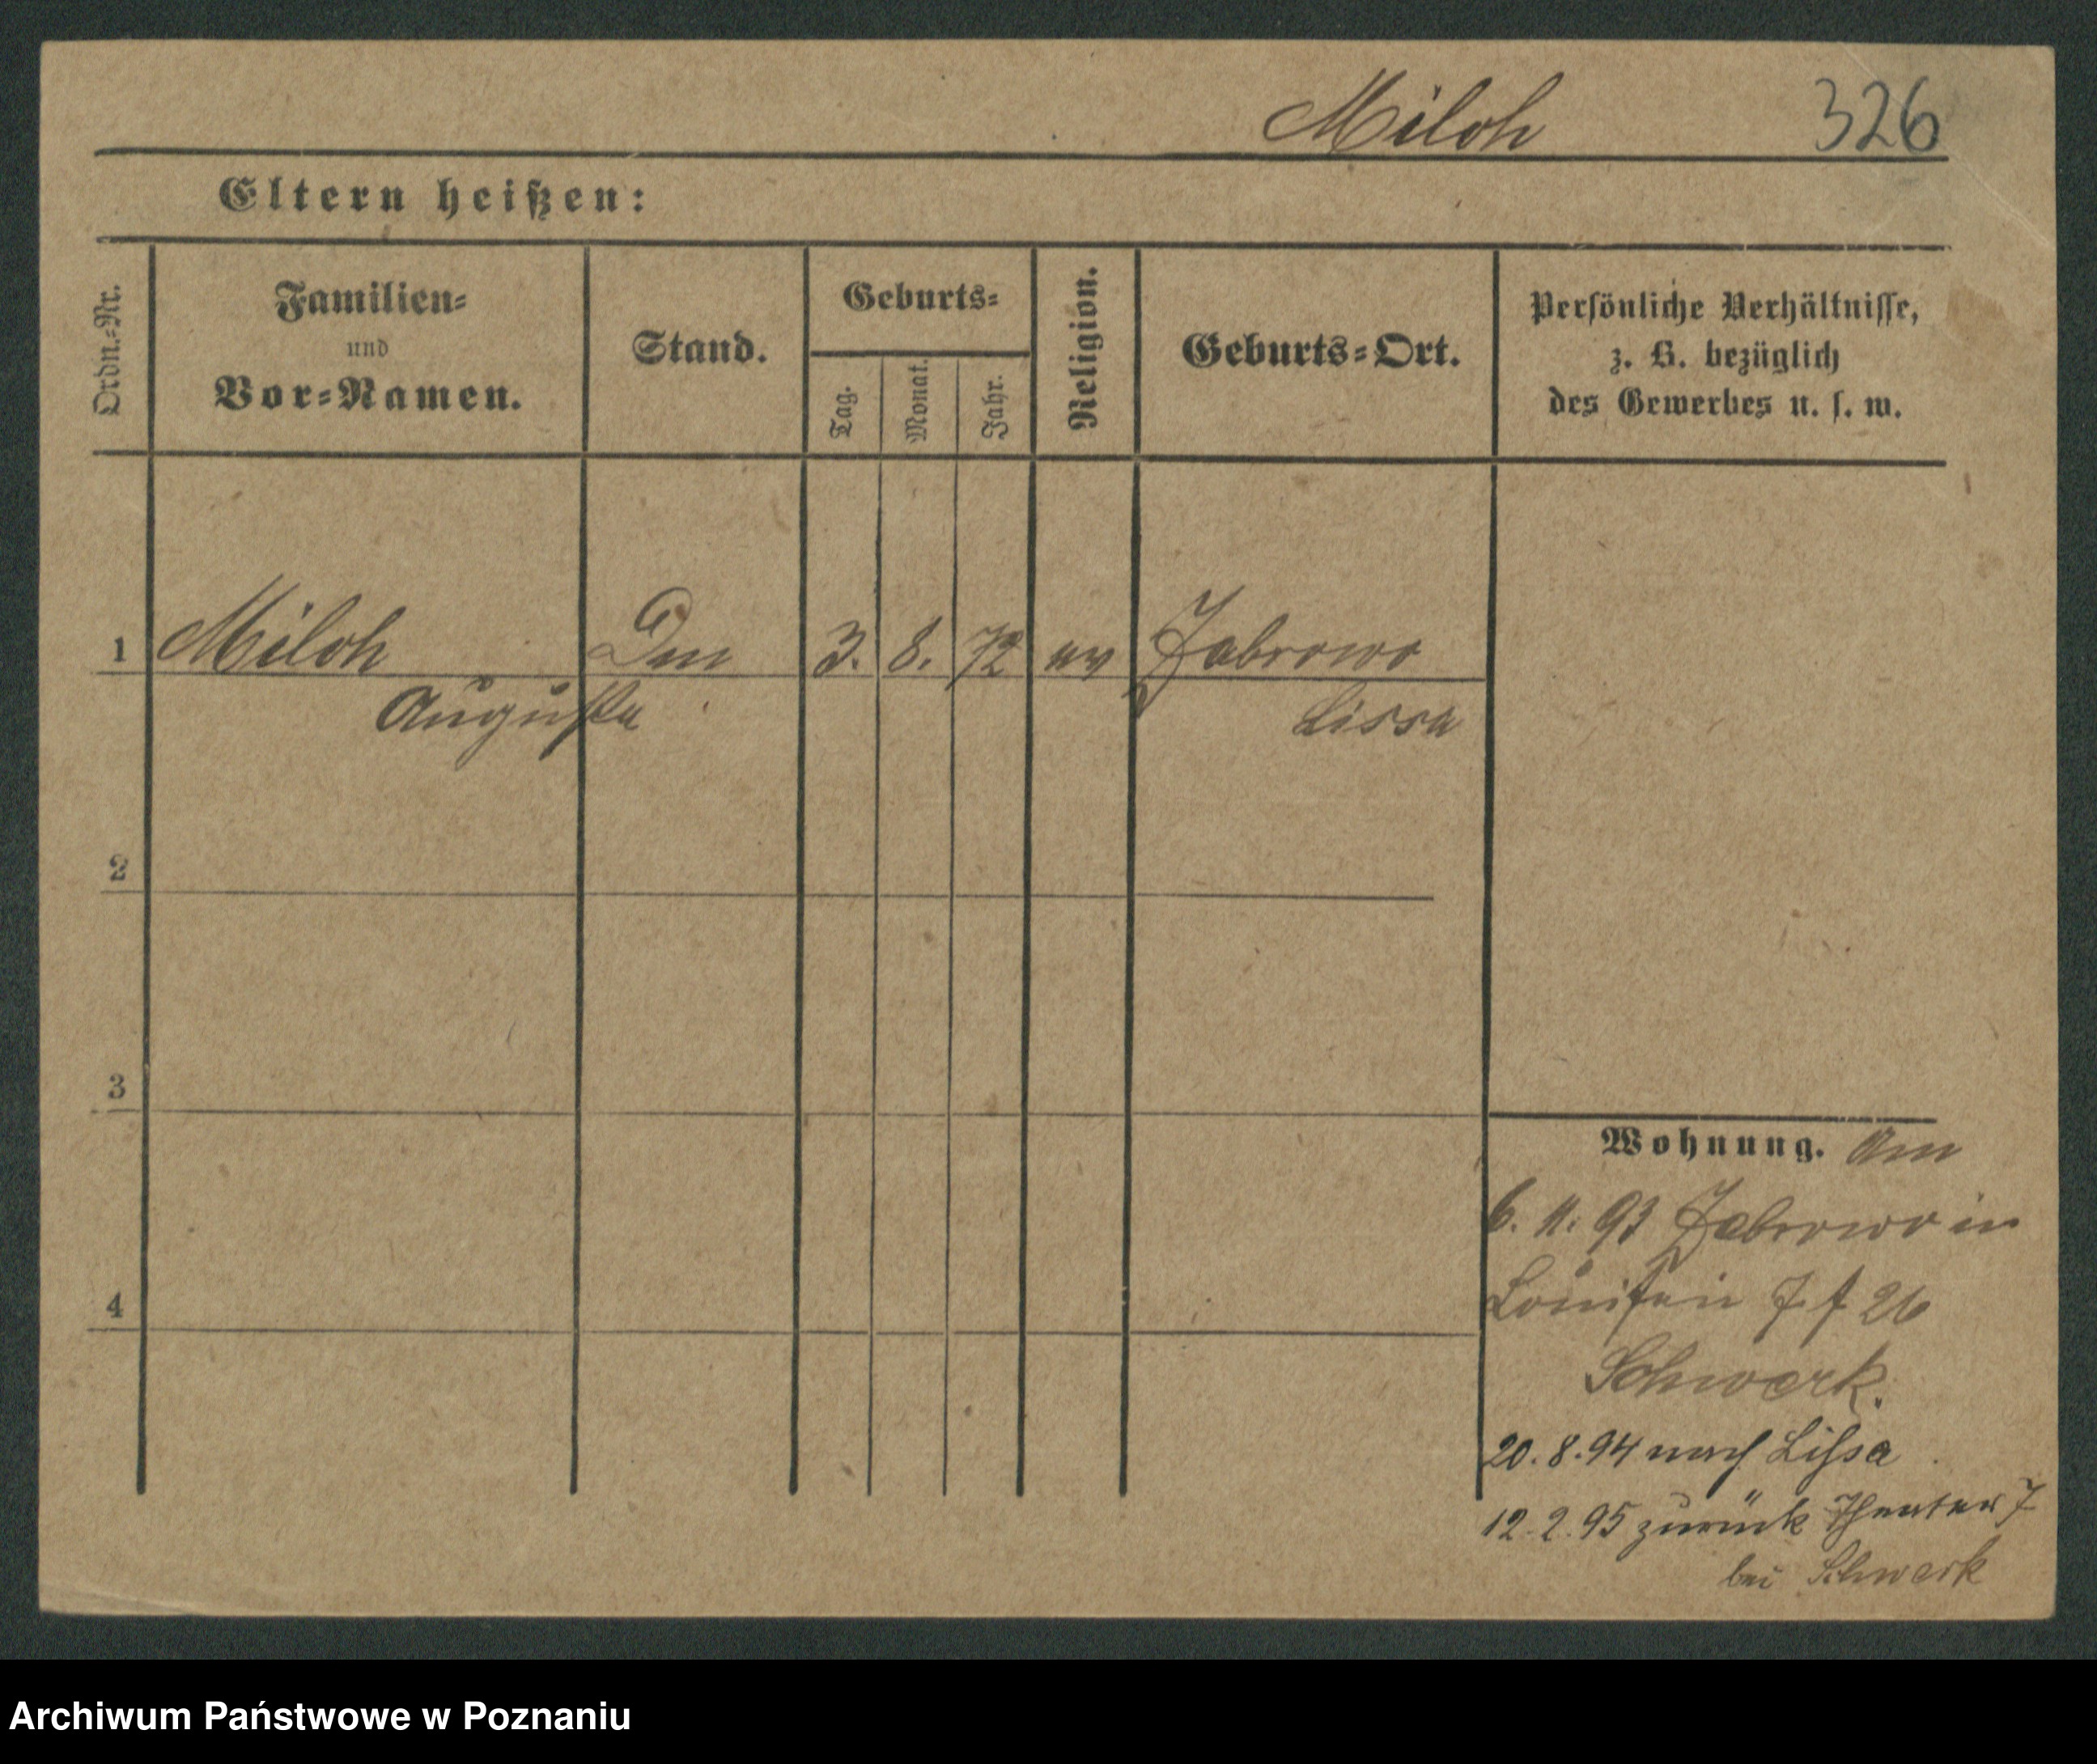 Miloh 326
Eltern heißen:
Ordn.-Nr.
Familien-
und
Vor-Namen.
Stand.
Geburts-
Tag.
Monat.
Jahr.
Religion.
Geburts-Ort.
Persönliche Verhältnisse,
z. B. bezüglich
des Gewerbes u. s. w.
1 Miloh 3. 8. 72 ev Zaborowo
Auguste Lissa
2
3
4
Wohnung. Am
6. 11. 93 Zaborowo in
26
Schwerk.
20. 8. 94 nach Lissa
12. 2. 95 zurück Theater 7
bei Schwerk
Archiwum Państwowe w Poznaniu